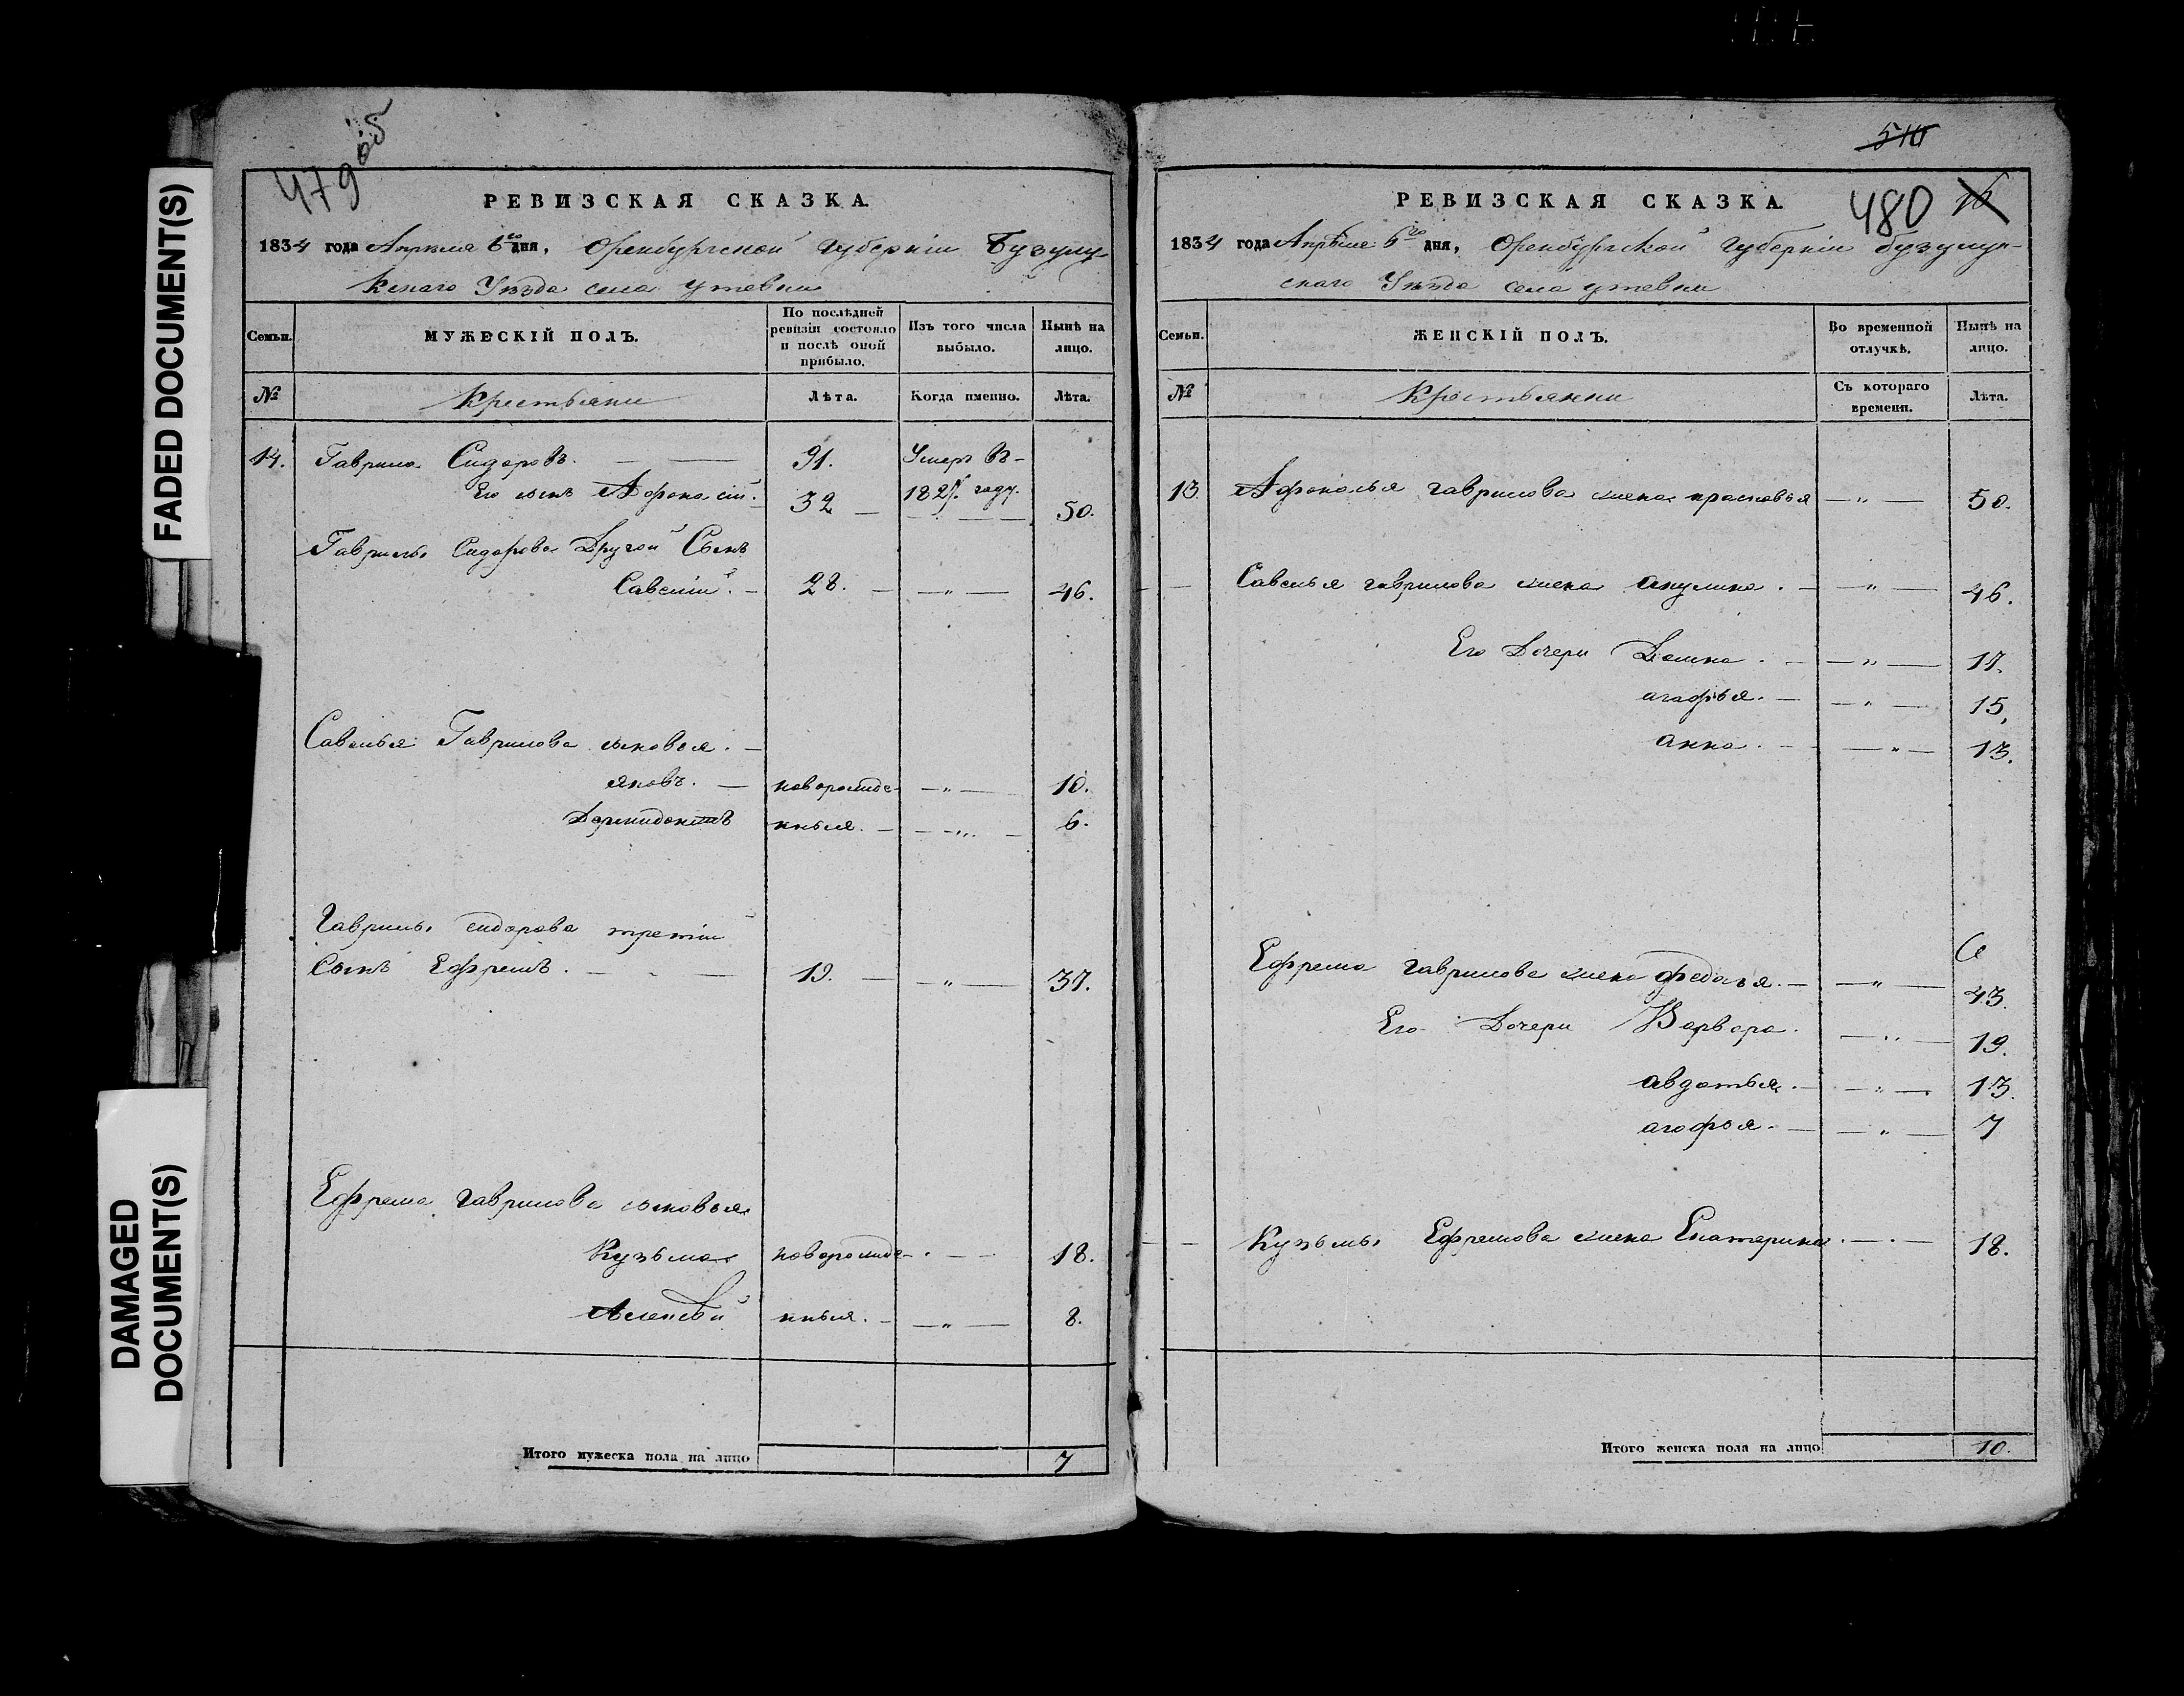 FADED DOCUMENT(S)
DAMAGED
DOCUMENT(S)
479 об
РЕВИЗСКАЯ СКАЗКА.
1834 года Апреля 6го дня, Оренбургской Губерніи Бузулу
кскаго Уѣзда села утевки
Семьи. МУЖЕСКІЙ ПОЛЪ. По послѣдней ревизіи состояло и послѣ оной прибыло. Изъ того числа выбыло. Нынѣ на лицо.
№ Крестьяни Лѣта. Когда именно. Лѣта.
14. Гаврила Сидоровъ. — — 91. Умеръ въ-
Его сынъ Афонасій. 32 — 182 году. 50.
Гаврилы Сидорова Другой Сынъ
Савелій. — 28. — — „ — 46.
Савелья Гаврилова сыновья. —
яковъ. — новорожде- — „ — 10.
Дормидонтъ нныя. — — „ — 6.
Гаврилы сидорова третіи
Сынъ Ефремъ. — — 19. — — „ — 37.
Ефрема гаврилова сыновья
Кузьма новорожде- — — 18.
Алексѣй нныя. — — „ — 8.
Итого мужеска пола на лицо 7
510
480 16
РЕВИЗСКАЯ СКАЗКА.
1834 года Апрѣля 6го дня, Оренбургской Губерніи бузулук-
скаго Уѣзда села утевки
Семьи. ЖЕНСКІЙ ПОЛЪ. Во временной отлучкѣ. Нынѣ на лицо.
№ Крестьянки Съ котораго времени. Лѣта.
13 Афонасья гаврилова жена прасковья — „ — 50.
— Савелья гаврилова жена акулина. — — „ — 46.
Его Дочери Домна. — — „ — 17.
агафья. — — „ — 15,
анна. — — „ — 13.
Ефрема гаврилова жена федосья. — — „ — 43.
Его Дочери Варвара. — „ — 19.
авдотья. — — „ — 13.
агофья. — — „ — 7
— Кузьмы Ефремова жена Екатерина. — — 18.
Итого женска пола на лицо 10.